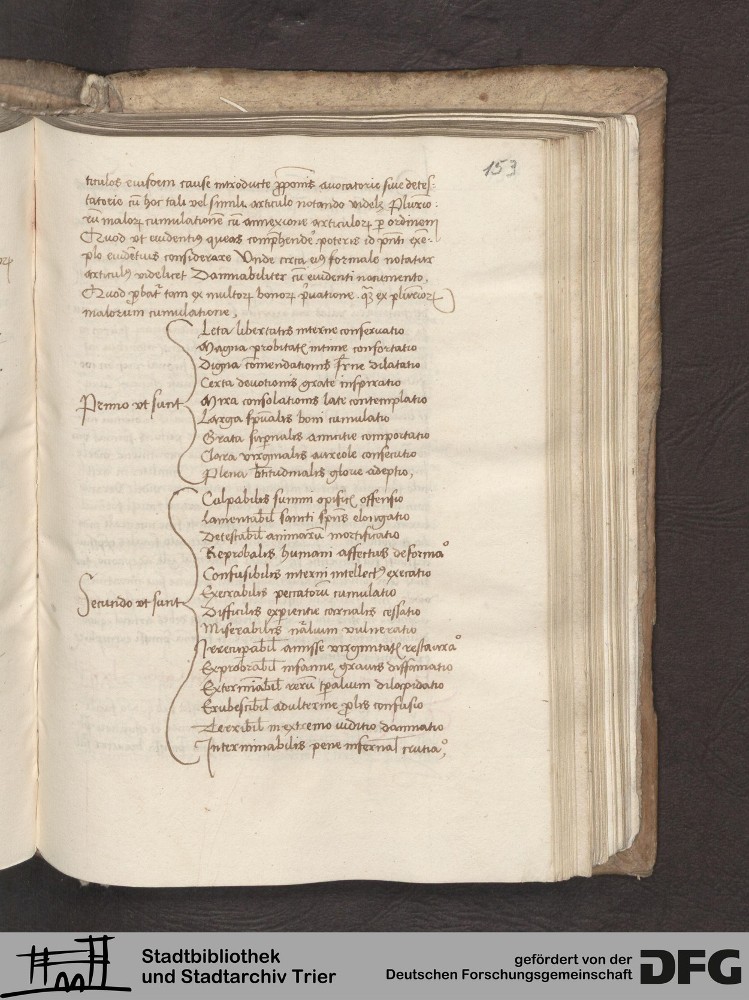 153
ticulos eiusdem cause introducte ꝓpoıs avocatorie siue detes-
tatorie cū hoc tali vel simili articulo notando videlꝫ Plurio-
rū maloꝝ cumulatione cū annexione articuloꝝ ꝑ ordinem
Quod vt euidentiꝰ queas comp̄hende͛ poteris id pn̄ti exē-
plo euidētius considerare Vnde circa eiꝰ formale notatur
articulꝰ videlicet Damnabiliter cū euidenti nocumento.
Quod ꝓbat᷑ tam ex multoꝝ bonoꝝ p͛uatione. qꝫ ex plurioꝝ
malorum cumulatione,
Primo vt sunt
Leta libertatis interne conseruatio
Magna probitatꝭ intime confortatio
Digna cōmendationis dilatatio
Certa deuotionis grate inspiratio
Mira consolationis late contemplatio
Larga sp̄ualis boni cumulatio
Grata suꝑnalis amicitie comportatio
Clara virginalis aureole consecutio
Plena btītudinalis glorie adeptio,
Secundo vt sunt
Culpabilis summi opificꝭ offensio
Lamentabil̄ sancti sp̄us elongatio
Detestabil̄ animarū mortificatio
Reprobalis humani affectus deformaᵒ
Confusibilis interni intellectꝰ execatio
Execrabilis peccatorū cumulatio
Difficilis experientie carnalis cessatio
Miserabilis nāalium vulneratio
Irrecuperabil̄ amisse virginitatꝭ restauraᵒ
Exprobrabil̄ infamie grauis diffamatio
Exterminabil̄ rerū tp̄alium dilapidatio
Erubescibil̄ adulterine ꝓlis confusio
Terribil̄ in extremo iuditio damnatio
Interminabilis pene infernal̄ cruciaᵒ,
Stadtbibliothek
und Stadtarchiv Trier
gefördert von der
Deutschen Forschungsgemeinschaft
DFG